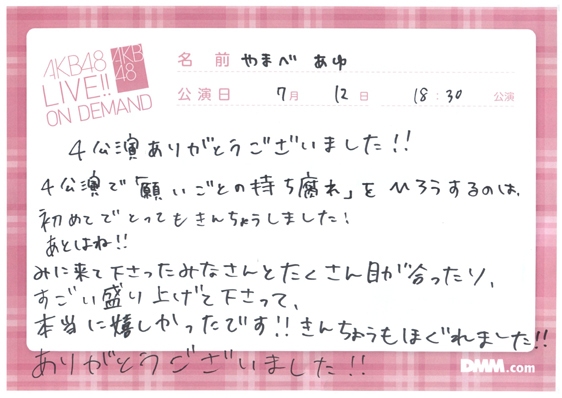 AKB48
LIVE!!
ON DEMAND
AKB
48
名 前 やまべ あゆ
公演日 7月 12日 18:30 公演
4公演ありがとうございました!!
4公演で「願いごとの持ち腐れ」をひろうするのは、
初めてでとってもきんちょうしました!
あとはね!!
みに来て下さったみなさんとたくさん目が合ったり、
すごい盛り上げて下さって、
本当に嬉しかったです!!きんちょうもほぐれました!!
ありがとうございました!!
DMM.com